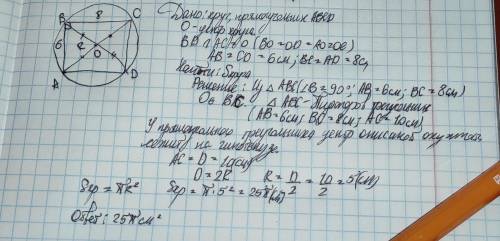 B 8 C
6 R O
A D
Дано: круг, прямоугольник ABCD
O - центр круга
BD ∩ AC = O (BO = OD = AO = OC)
AB = CD = 6см; BC = AD = 8см
Найти: Sкруга
Решение: Из △ABC (∠B = 90°; AB = 6см; BC = 8см)
△ABC - Пифагоров треугольник
(AB = 6см; BC = 8см; AC = 10см)
У прямоугольного треугольника центр описаной окружности
лежит на гипотенузе.
AC = D = 10см
D = 2R R = D/2 = 10/2 = 5(см)
Sкр = πR² Sкр = π·5² = 25π(см²)
Ответ: 25π см²